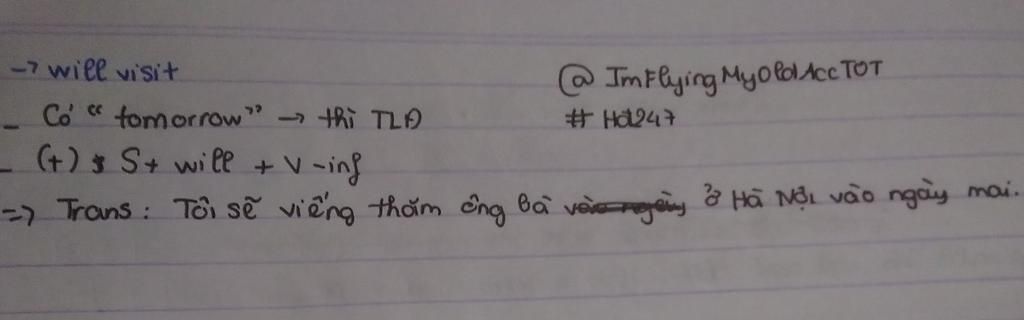 → will visit @ ImFlyingMyOldAccTOT
- Có "tomorrow" → thì TLĐ # Hd247
- (+) S + will + V-inf
=> Trans: Tôi sẽ viếng thăm ông bà ở Hà Nội vào ngày mai.